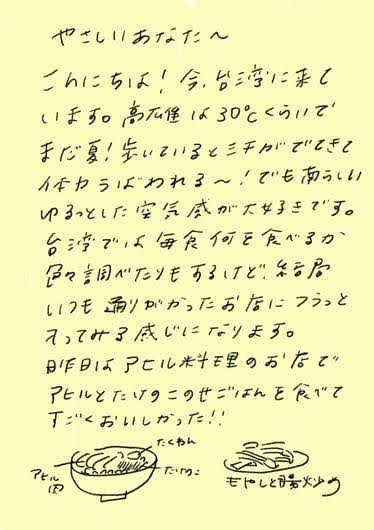 やさしいあなたへ
こんにちは！今、台湾に来て
います。高雄は30℃くらいで
まだ夏！歩いていると汗がでてきて
体力うばわれる〜！でも南らしい
ゆるっとした空気感が大好きです。
台湾では毎食何を食べるか
色々調べたりもするけど、結局
いつも通りがかったお店にフラっと
入ってみる感じになります。
昨日はアヒル料理のお店で
アヒルとたけのこのせごはんを食べて
すごくおいしかった!!
たくわん
アヒル肉
たけのこ
もやしと腸炒め